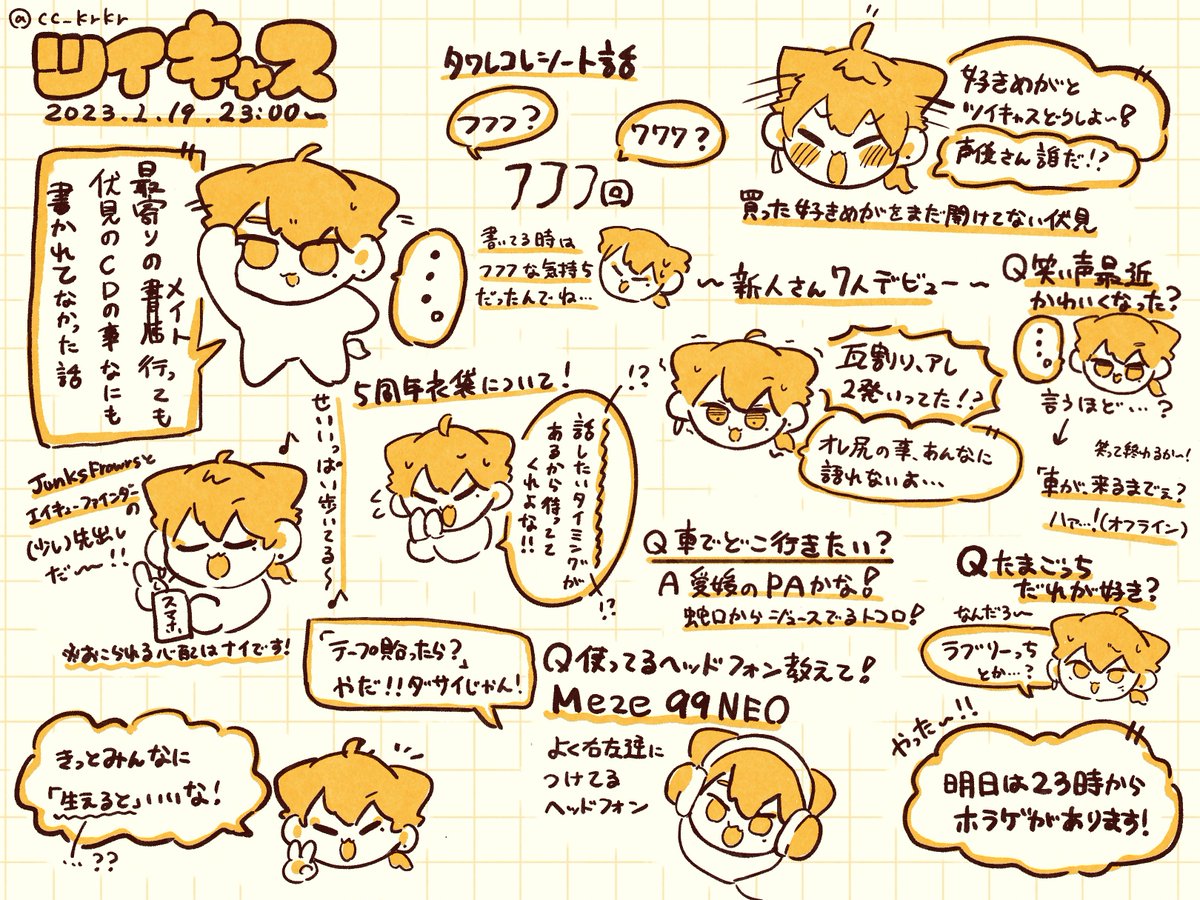 @cc_krkr
ツイキャス
2023.1.19.23:00〜
最寄りの書店行っても
メイト
伏見のCDの事なにも
書かれてなかった話
・・・。
タワレコレシート話
フフフ?
ワワワ?
フフフ回
書いてる時は
フフフな気持ち
だったんでね…
好きめがと
ツイキャスどうしよ〜!
声優さん誰だ!?
買った好きめがをまだ開けてない伏見
〜新人さん7人デビュー〜
瓦割り、アレ
2発いってた!?
オレ尻の事、あんなに
語れないよ…
Q笑い声最近
かわいくなった?
・・・。
言うほど…?
笑って終わるがー!
「車が、来るまでぇ?
ハァ…!(オフライン)
5周年衣袋について!
!?
話したいタイミングが
あるから待ってて
くれよな!!
!?
せいいっぱい歩いてる〜♪
JunksFrowrsと
エイキューファインダーの
(少し)先出し
だ〜!!
スマホ
※おこられる心配はナイです!
Q車でどこ行きたい?
A愛媛のPAかな!
蛇口からジュースでるトコロ!
Qたまごっち
だれが好き?
なんだろ〜
ラブリーっち
とか…?
「テープ貼ったら?」
やだ!!ダサイじゃん!
Q使ってるヘッドフォン教えて!
Meze 99NEO
よく右友達に
つけてる
ヘッドフォン
きっとみんなに
「生えると」いいな!
…??
やった〜!!
明日は23時から
ホラゲがあります!